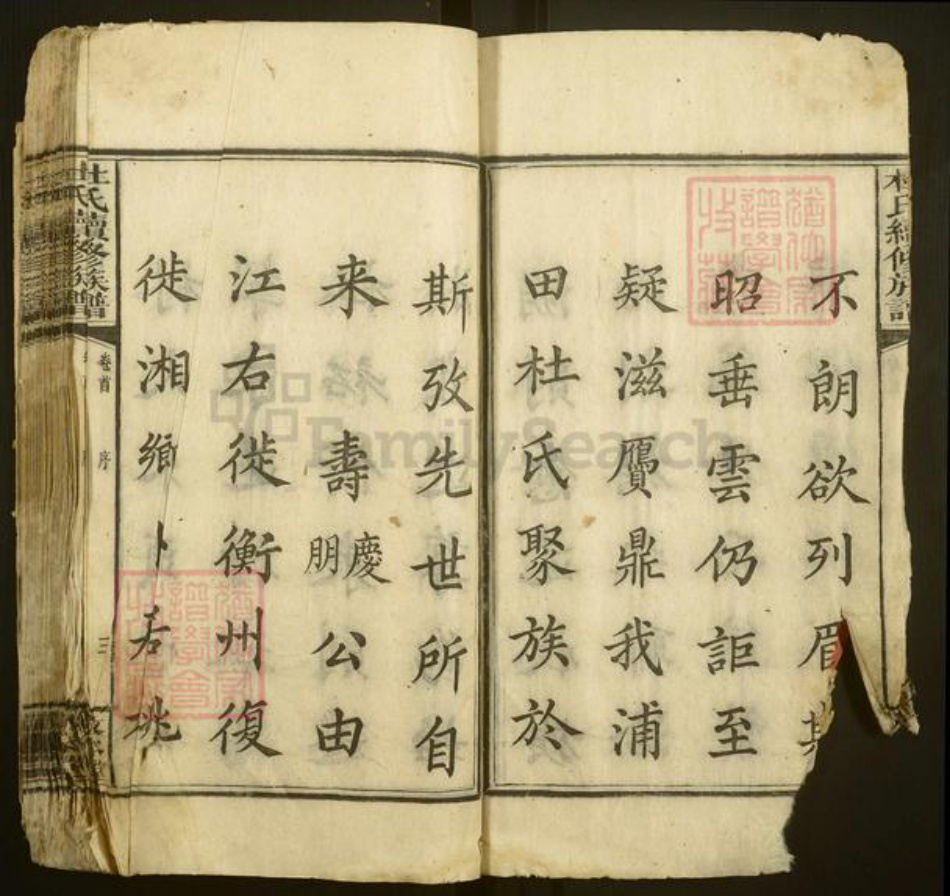 杜氏續修族譜
不朗欲列眉其
昭垂雲仍詎至
疑滋贋鼎我浦
田杜氏聚族於
斯攷先世所自
来壽慶朋公由
江右徙衡州復
徙湘鄉卜若桃
杜氏續修族譜
卷首
序
三
FamilySearch